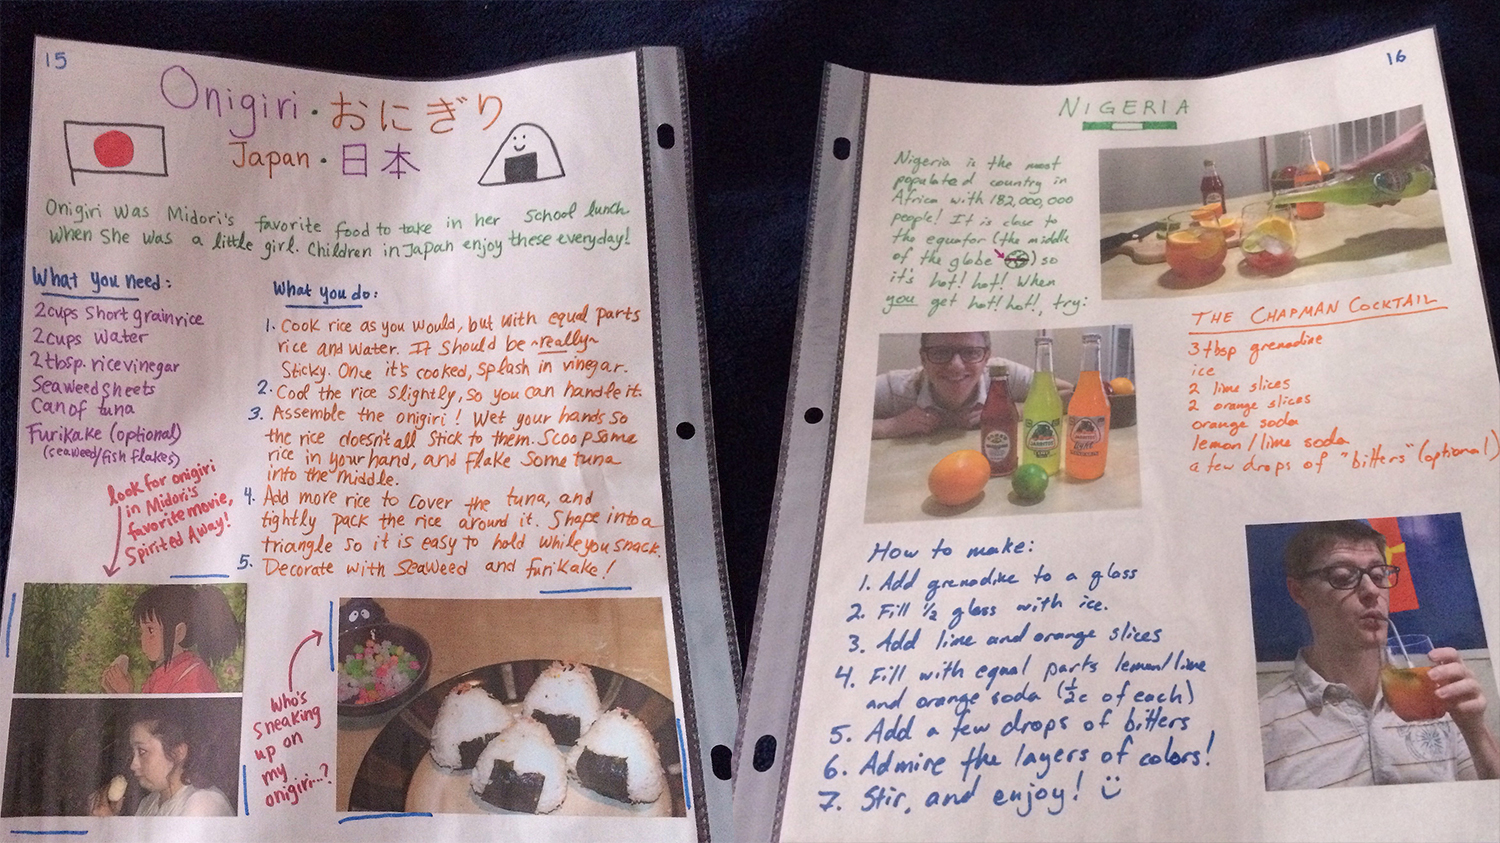 15
Onigiri · おにぎり
Japan · 日本
Onigiri was Midori's favorite food to take in her school lunch
when she was a little girl. Children in Japan enjoy these everyday!
What you need:
2 cups short grain rice
2 cups water
2 tbsp. rice vinegar
Seaweed sheets
Can of tuna
Furikake (optional)
(seaweed/fish flakes)
look for onigiri
in Midori's
favorite movie,
Spirited Away!
What you do:
1. Cook rice as you would, but with equal parts
rice and water. It should be ~really~
sticky. Once it's cooked, splash in vinegar.
2. Cool the rice slightly, so you can handle it.
3. Assemble the onigiri! Wet your hands so
the rice doesn't all stick to them. Scoop some
rice in your hand, and flake some tuna
into the middle.
4. Add more rice to cover the tuna, and
tightly pack the rice around it. Shape into a
triangle so it is easy to hold while you snack.
5. Decorate with seaweed and furikake!
Who's
sneaking
up on
my
onigiri...?
16
NIGERIA
Nigeria is the most
populated country in
Africa with 182,000,000
people! It is close to
the equator (the middle
of the globe ) so
it's hot! hot! When
you get hot! hot!, try:
THE CHAPMAN COCKTAIL
3 tbsp grenadine
ice
2 lime slices
2 orange slices
orange soda
lemon/lime soda
a few drops of "bitters" (optional)
JARRITOS
How to make:
1. Add grenadine to a glass
2. Fill 1/2 glass with ice.
3. Add lime and orange slices
4. Fill with equal parts lemon/lime
and orange soda (1/2c of each)
5. Add a few drops of bitters
6. Admire the layers of colors!
7. Stir, and enjoy!